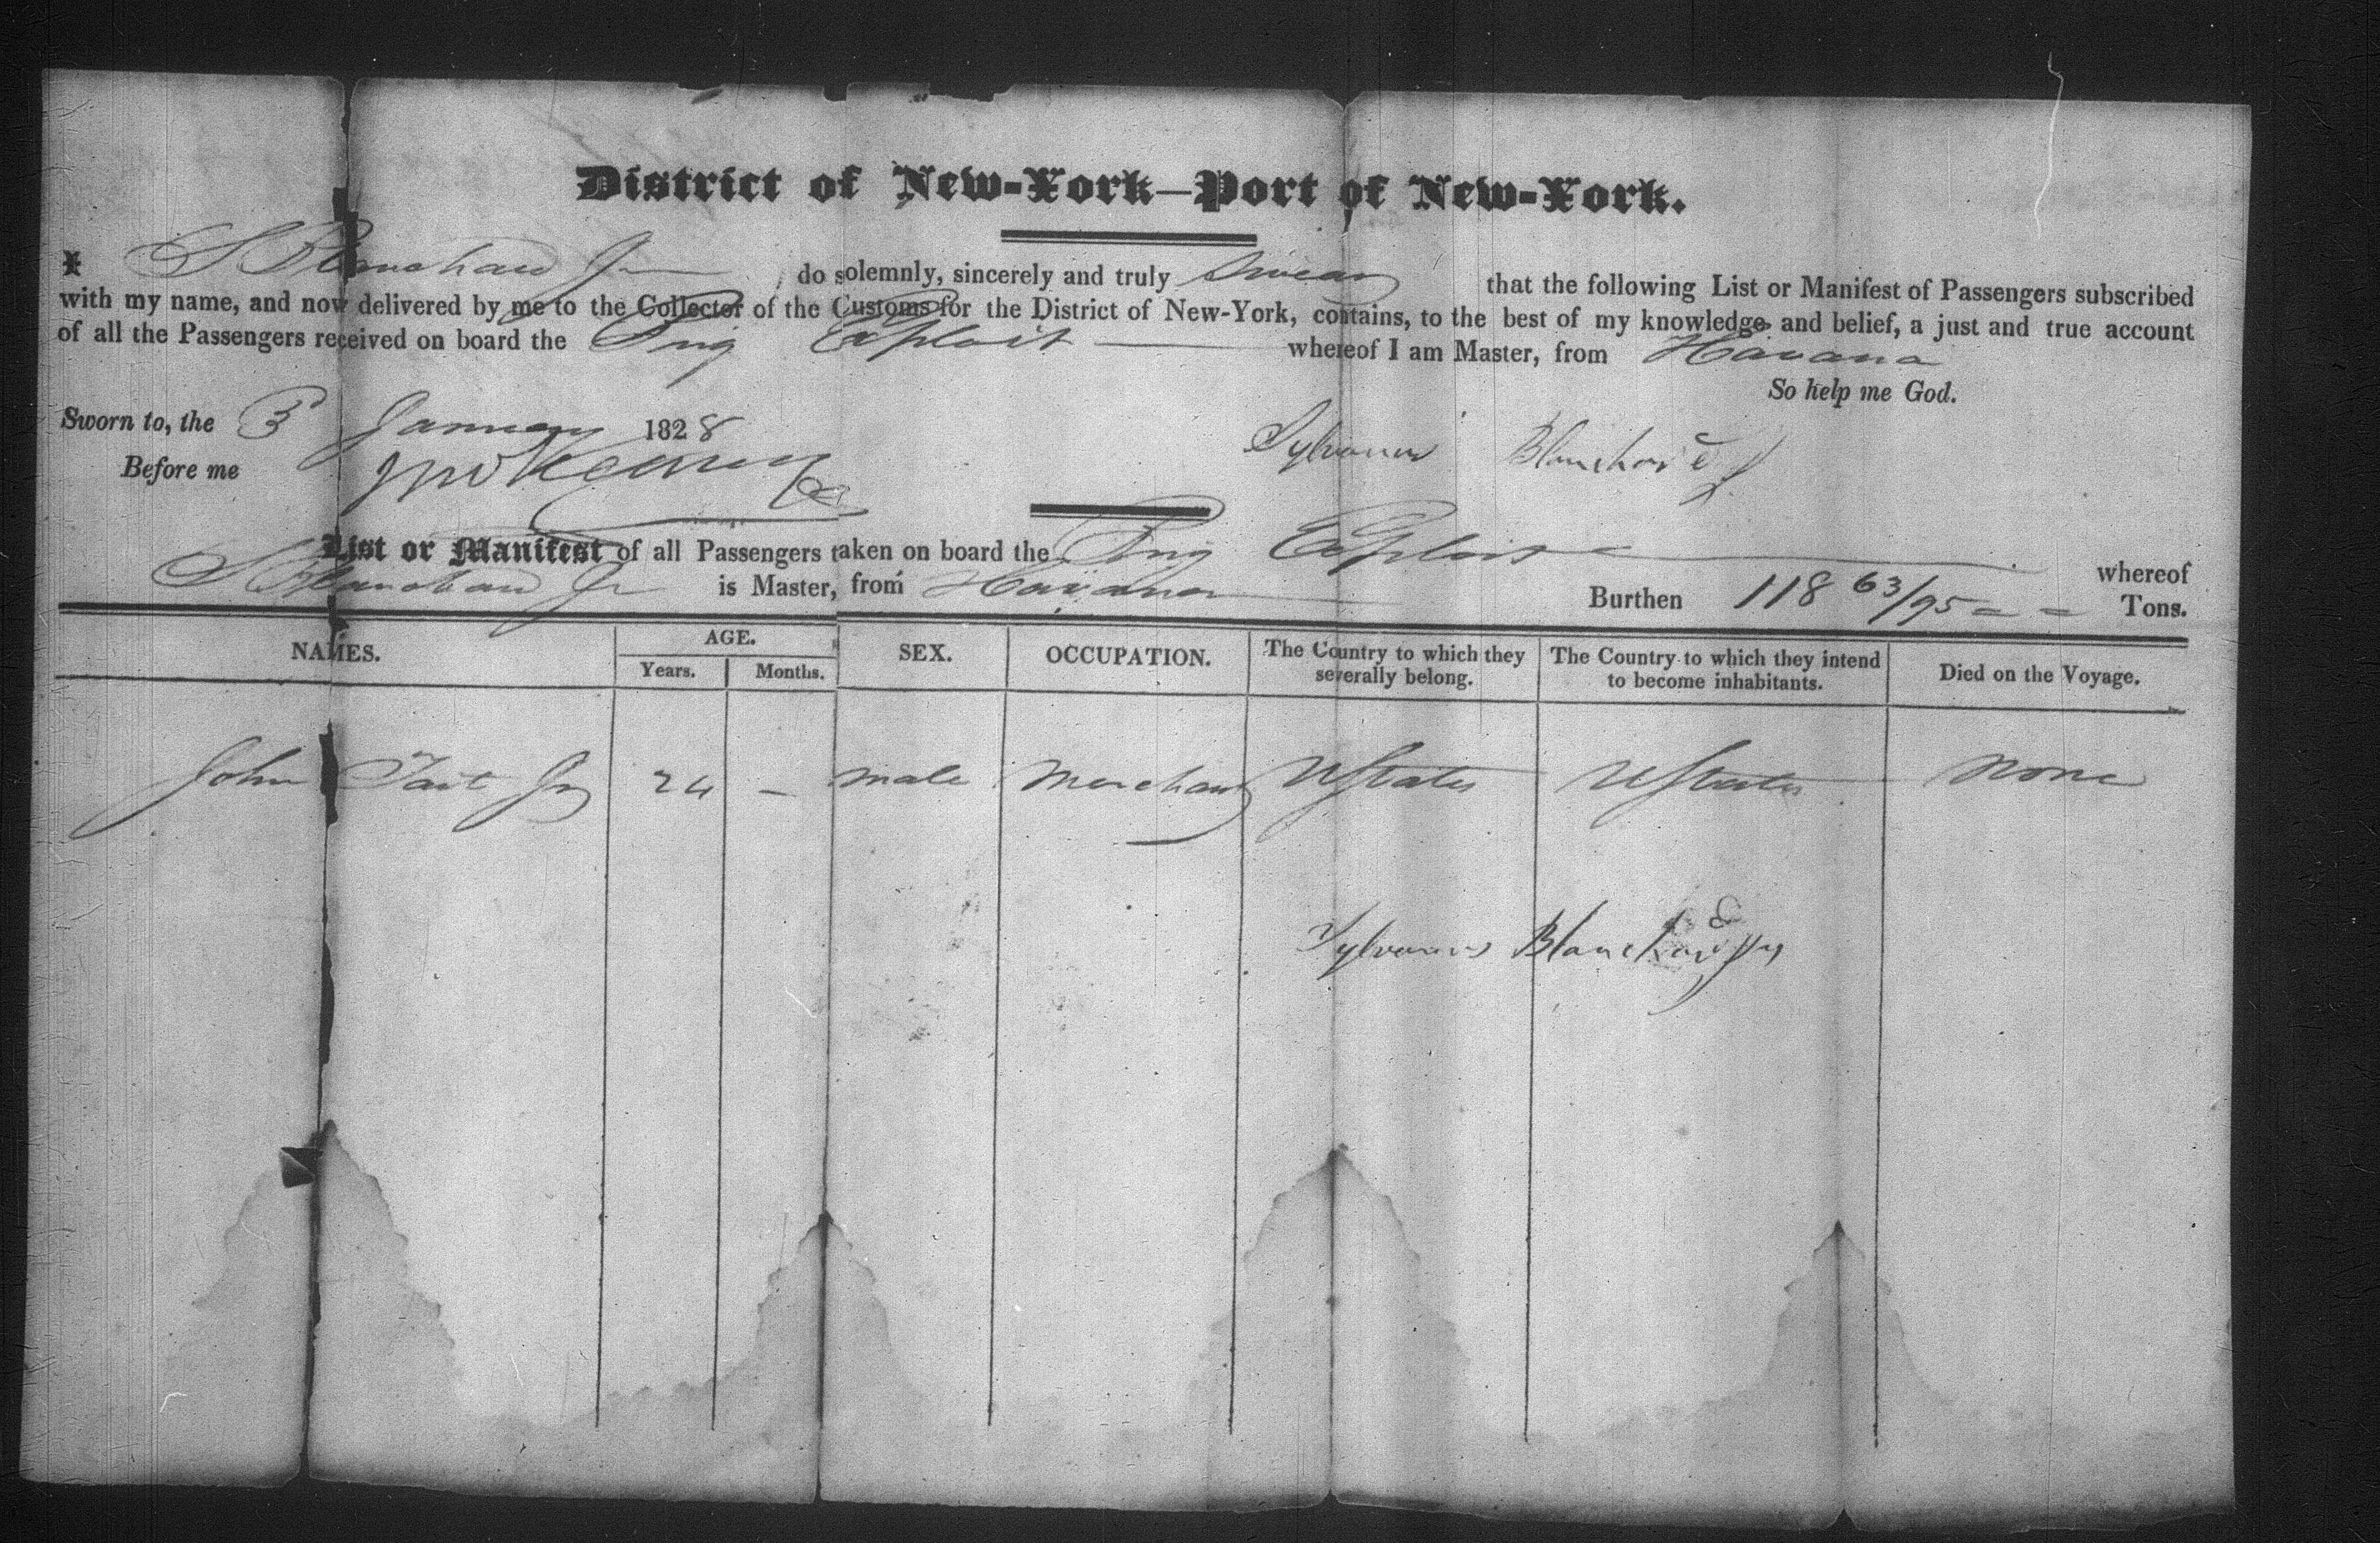 District of New-York—Port of New-York.
I S Blanchard Jr do solemnly, sincerely and truly Swear that the following List or Manifest of Passengers subscribed
with my name, and now delivered by me to the Collector of the Customs for the District of New-York, contains, to the best of my knowledge and belief, a just and true account
of all the Passengers received on board the Brig Exploit whereof I am Master, from Havana
So help me God.
Sworn to, the 3 January 1828
Sylvanus Blanchard Jr
Before me
List or Manifest of all Passengers taken on board the Brig Exploit whereof
S Blanchard Jr is Master, from Havana Burthen 118 63/95 Tons.
NAMES. AGE. Years. Months. SEX. OCCUPATION. The Country to which they severally belong. The Country to which they intend to become inhabitants. Died on the Voyage.
John Tait Jr 24 — male Merchant UStates UStates None
Sylvanus Blanchard Jr